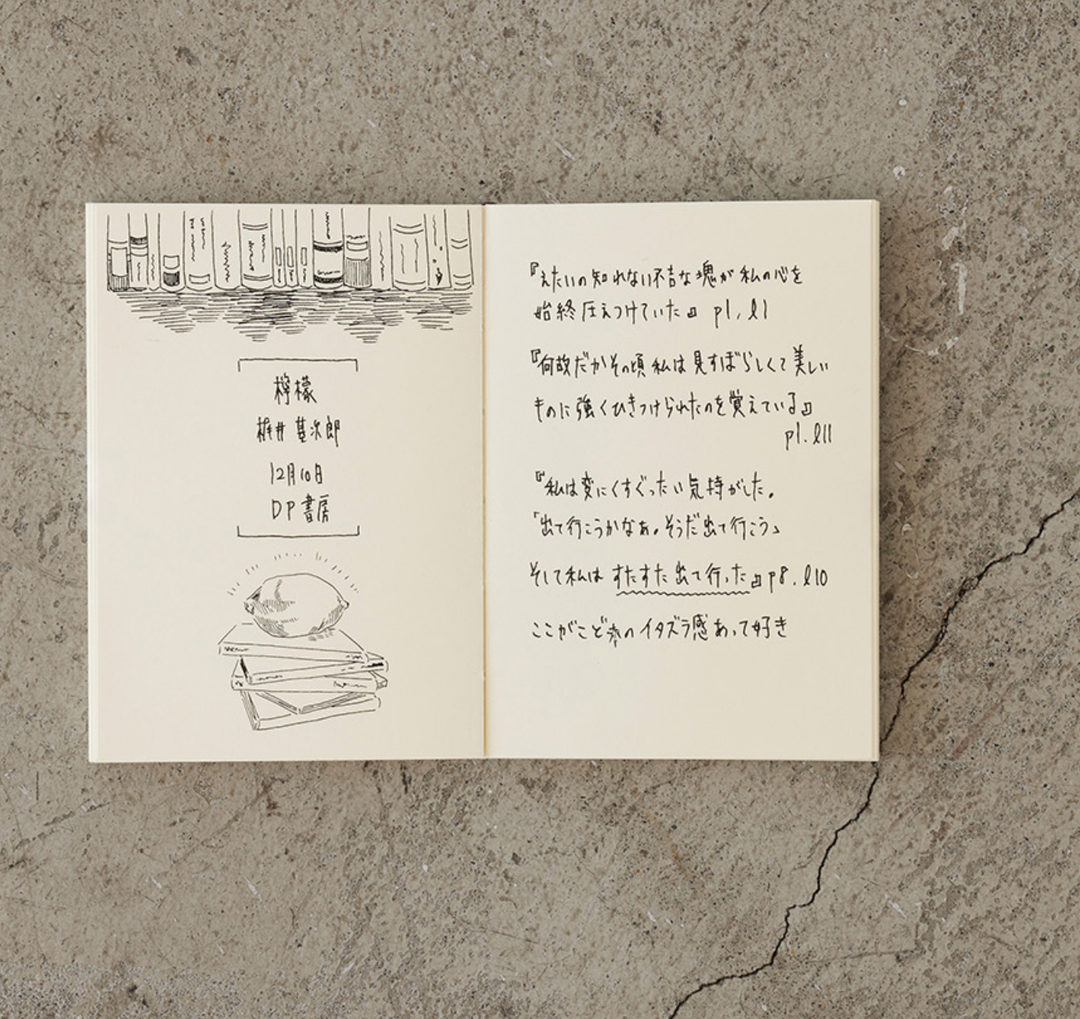 檸檬
梶井 基次郎
12月10日
DP書房
『えたいの知れない不吉な塊が私の心を
始終圧えつけていた』 p1, l1
『何故だかその頃私は見すぼらしくて美しい
ものに強くひきつけられたのを覚えている』
p1. l11
『私は変にくすぐったい気持がした。
「出て行こうかなあ。そうだ出て行こう」
そして私は すたすた出て行った』p8. l10
ここがこども的イタズラ感あって好き